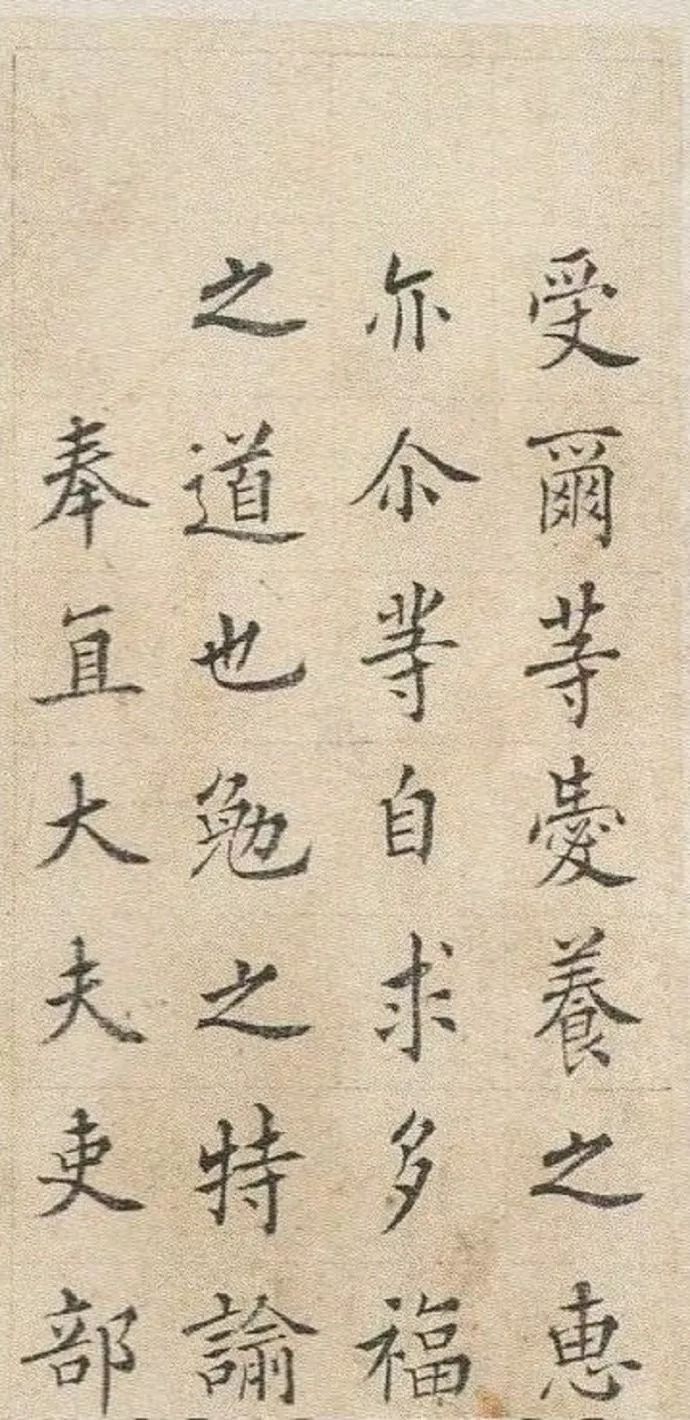 受爾等愛養之恵
亦尒等自求多福
之道也勉之特諭
奉直大夫吏部